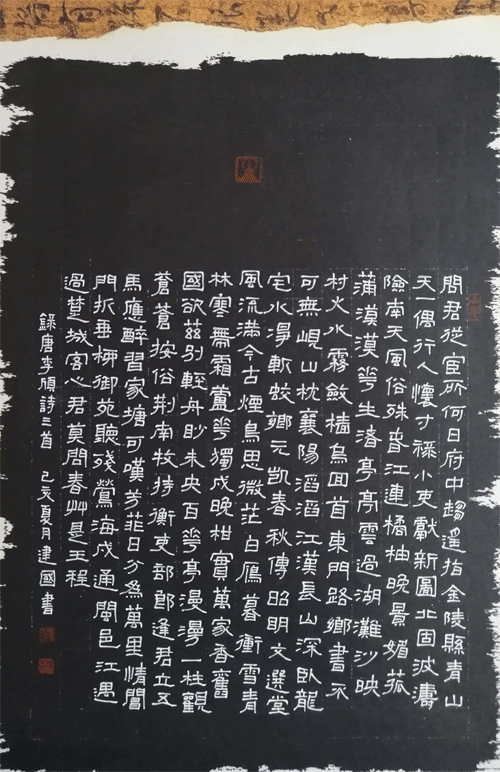 問君從宦所何日府中趨遙指金陵縣青山
天一隅行人懷寸祿小吏獻新圖北固波濤
險南天風俗殊春江連橘柚晚景媚菰
蒲漠漠華生渚亭亭雲過湖灘沙映
村火水霧斂檣烏回首東門路鄉書不
可無峴山枕襄陽滔滔江漢長山深臥龍
宅水淨斬蛟鄉元凱春秋傳昭明文選堂
風流滿今古煙島思微茫白雁暮衝雪青
林寒帶霜蘆華獨戍晚柑實萬家香舊
國欲茲別輕舟眇未央百華亭漫漫一柱觀
蒼蒼按俗荊南牧持衡吏部郎逢君立五
馬應醉習家塘可嘆芳菲日分為萬里情閶
門折垂柳御苑聽殘鶯海戍通閩邑江遇
過楚城客心君莫問春艸是王程
錄唐李頎詩三首 己亥夏月建國書